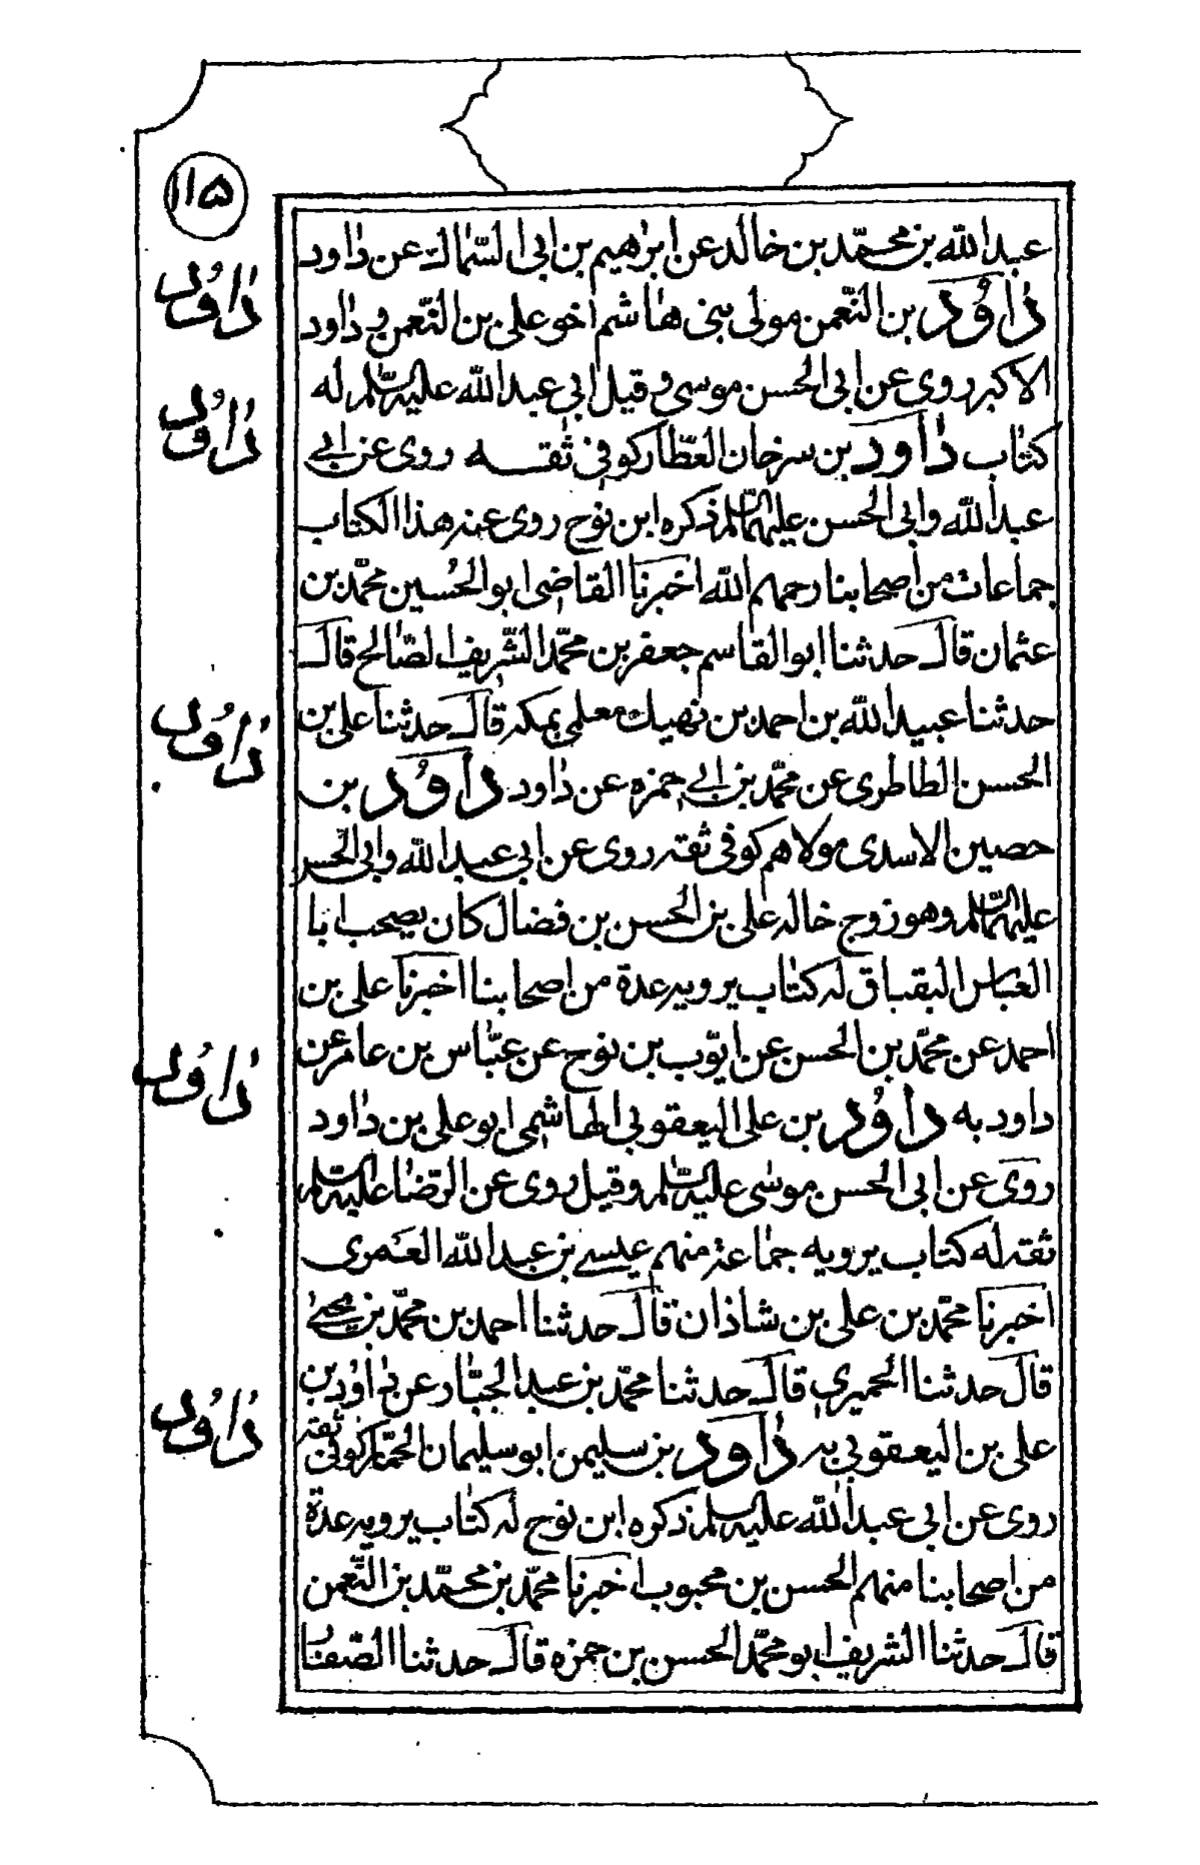 ۱۱۵
عبد الله بن محمّد بن خالد عن ابرٰهيم بن ابى السّمال عن دٰاود
دٰاوُد بن النّعمن مولى بنى هٰاشم اخو على بن النّعمن و دٰاود
الاكبر روى عن ابى الحسن موسى و قيل ابي عبد الله عليه السّلم له
كتٰاب دٰاود بن سرحان العطّار كوفى ثقه روى عن ابي
عبد الله و ابى الحسن عليهما السّلم ذكره ابن نوح روى عنه هذا الكتاب
جماعات من اصحابنا رحمهم الله اخبرنا القاضى ابو الحُسين محمّد بن
عثمان قال حدثنا ابو القاسم جعفر بن محمّد الشّريف الصّالح قال
حدثنا عبيد الله بن احمد بن نهيك معلمي بمكه قال حدثنا على بن
الحسن الطاطرى عن محمّد بن ابي حمزه عن دٰاود داوُد بن
حصين الاسدى مولاهم كوفى ثقه روى عن ابى عبد الله و ابى الحسن
عليهما السّلم و هو زوج خاله على بن الحسن بن فضال كان يصحب ابا
العبّاس البقباق له كتٰاب يرويه عدة من اصحابنا اخبرنا على بن
احمد عن محمّد بن الحسن عن ايّوب بن نوح عن عبّاس بن عامر عن
داود به داوُد بن على اليعقوبي الهاشمى ابو على بن دٰاود
روى عن ابى الحسن موسٰى عليه السّلم و قيل روى عن الرّضٰا عليه السّلم
ثقه له كتاب يرويه جمٰاعة منهم عيسى بن عبد الله العَمرى
اخبرنا محمّد بن على بن شاذان قال حدثنا احمد بن محمّد بن يحيى
قال حدثنا الحميري قال حدثنا محمّد بن عبد الجبّار عن دٰاوُد بن
على بن اليعقوبي به دٰاود بن سليمن ابو سليمان الحمّار كوفى ثقه
روى عن ابى عبد الله عليه السلم ذكره ابن نوح له كتٰاب يرويه عدة
من اصحابنا منهم الحسن بن محبوب اخبرنا محمّد بن محمّد بن النّعمن
قال حدثنا الشريف ابو محمّد الحسن بن حمزه قال حدثنا الصّفّار
دٰاوُد
دٰاوُد
دٰاوُد
دٰاوُد
دٰاوُد